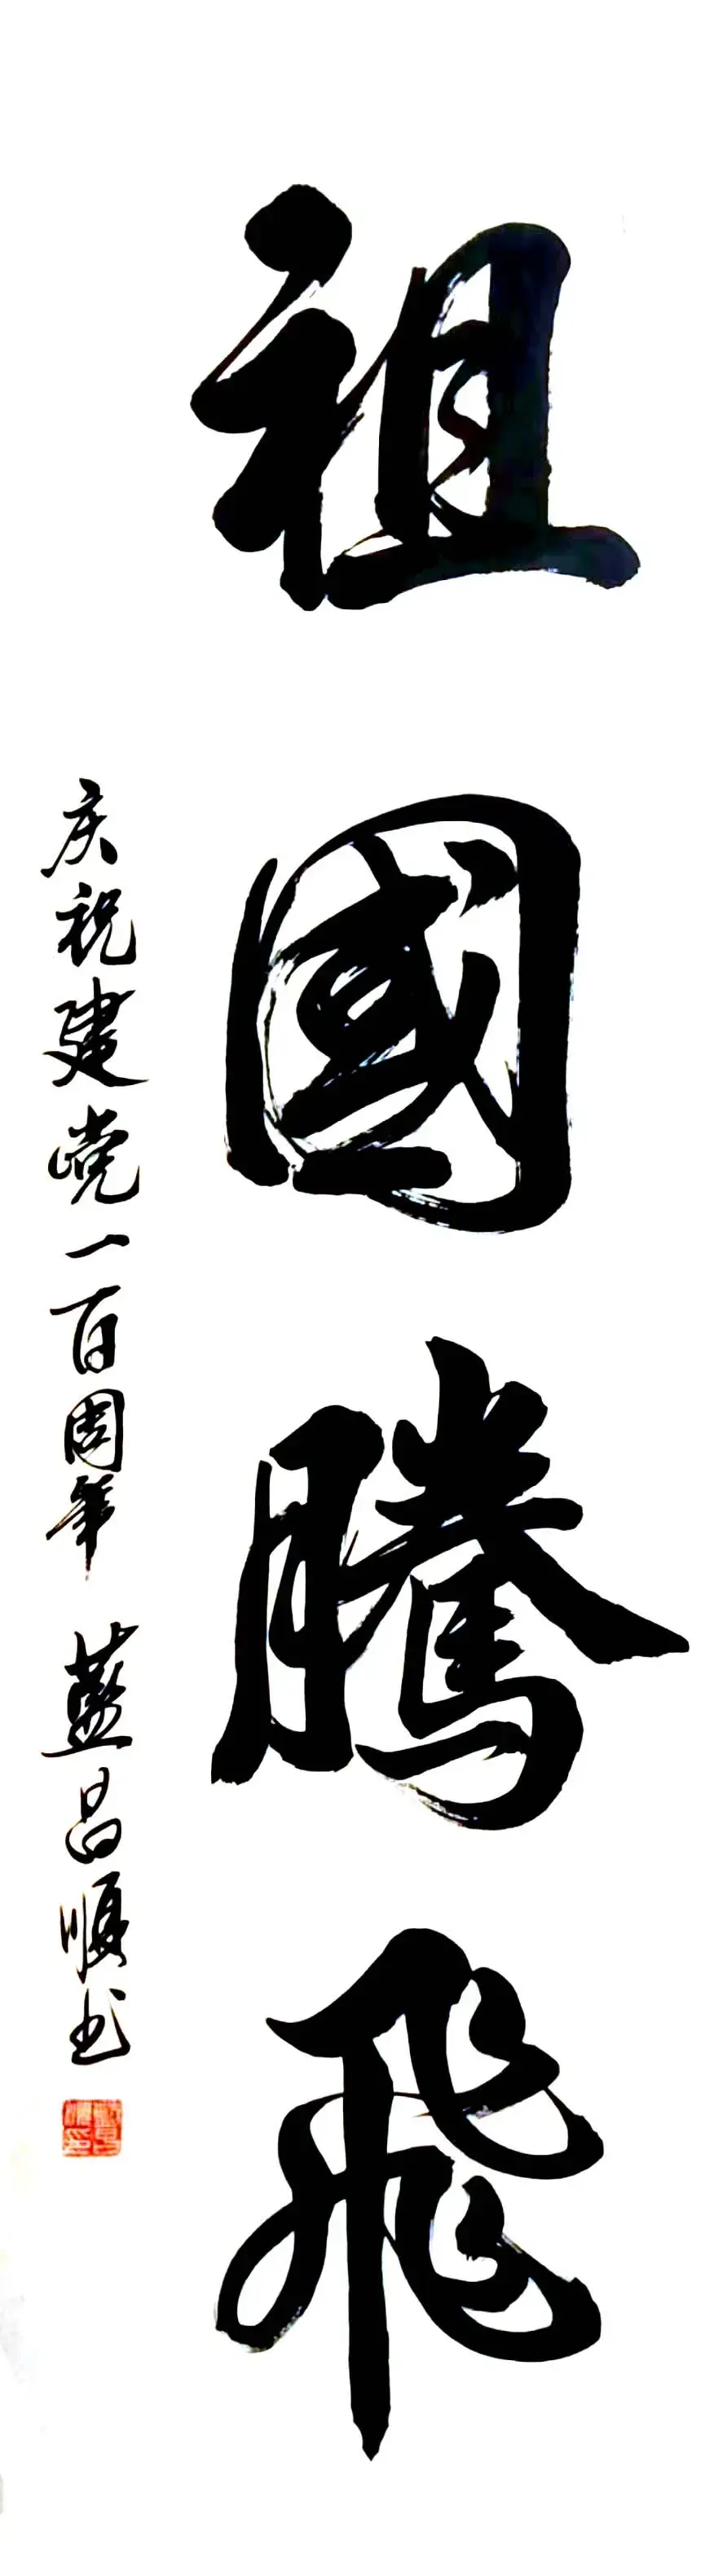 祖國騰飛
庆祝建党一百周年 藍昌順书